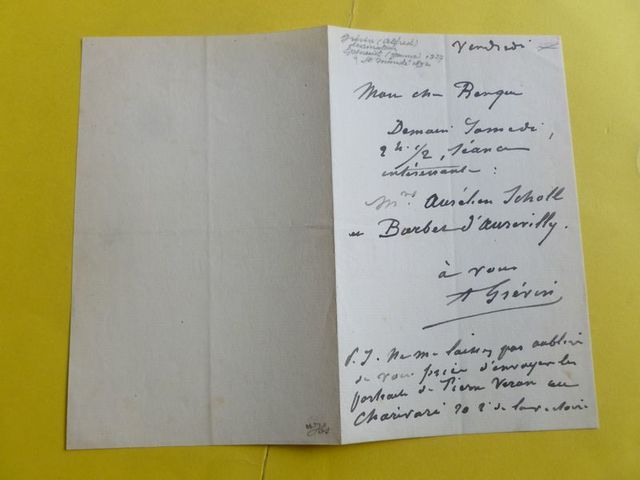 Grévin (Alfred)
dessinateur
Epineuil (Yonne) 1827
St Mandé 1892
Vendredi
Mon cher Benque
Demain Samedi,
2 h. 1/2, Séance
intéressante :
Mrs Aurélien Scholl
et Barbey d'Aurevilly.
à vous
A Grévin
P. S. Ne me laissez pas oublier
de vous prier d'envoyer les
portraits de Pierre Veron au
Charivari 20 r. de la victoire